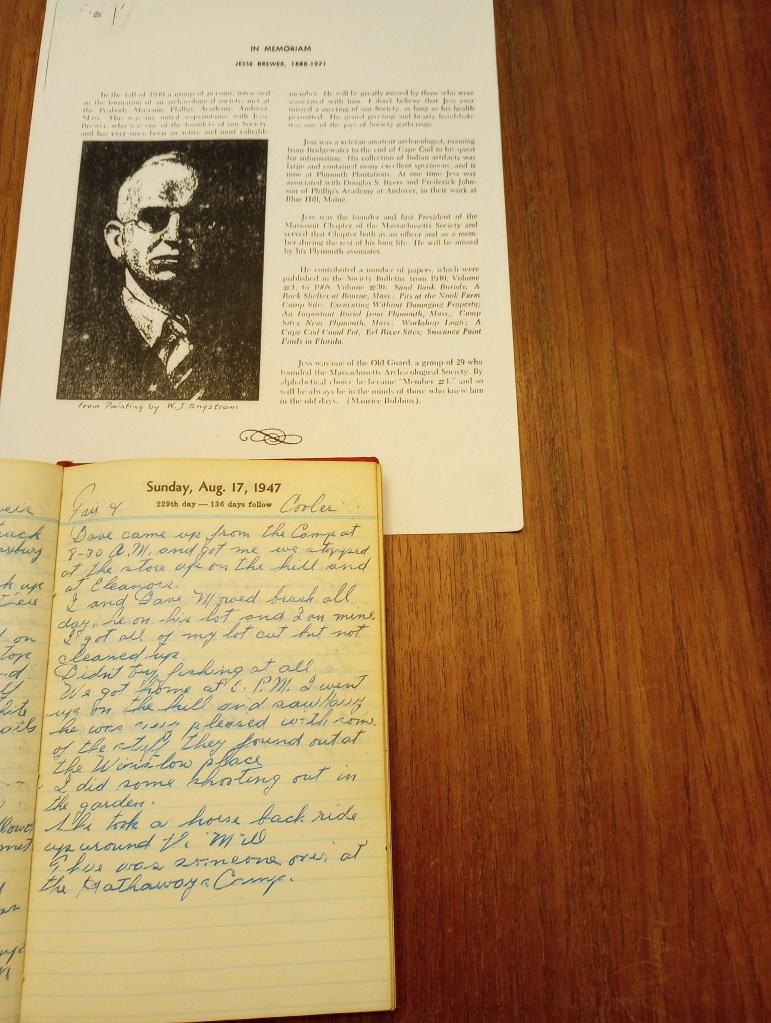 IN MEMORIAM
JESSE BREWER, 1888-1971
In the fall of 1939 a group of persons, interested
in the formation of an archaeological society, met at
the Peabody Museum, Phillips Academy, Andover,
Mass. This was my initial acquaintance with Jesse
Brewer, who was one of the founders of our Society,
and has ever since been an active and most valuable
From Painting by W. J. Engstrom
member. He will be greatly missed by those who were
associated with him. I don't believe that Jess ever
missed a meeting of our Society, as long as his health
permitted. His grand greeting and hearty handshake
was one of the joys of Society gatherings.
Jess was a veteran amateur archaeologist, roaming
from Bridgewater to the end of Cape Cod in his quest
for information. His collection of Indian artifacts was
large and contained many excellent specimens, and is
now at Plymouth Plantations. At one time Jess was
associated with Douglas S. Byers and Frederick John-
son of Phillip's Academy at Andover, in their work at
Blue Hill, Maine.
Jess was the founder and first President of the
Massasoit Chapter of the Massachusetts Society and
served that Chapter both as an officer and as a mem-
ber during the rest of his long life. He will be missed
by his Plymouth associates.
He contributed a number of papers, which were
published in the Society Bulletin from 1940, Volume
#1, to 1968, Volume #30: Sand Bank Burials; A
Rock Shelter at Bourne, Mass.; Pits at the Nook Farm
Camp Site; Excavating Without Damaging Property;
An Important Burial from Plymouth, Mass.; Camp
Sites Near Plymouth, Mass.; Workshop Logic; A
Cape Cod Canal Pot; Eel River Sites; Suwanee Point
Finds in Florida.
Jess was one of the Old Guard, a group of 29 who
founded the Massachusetts Archaeological Society. By
alphabetical choice he became "Member #1," and so
will he always be in the minds of those who knew him
in the old days. (Maurice Robbins).
Sunday, Aug. 17, 1947
229th day — 136 days follow
Fair & Cooler
Dave came up from the Camp at
8-30 A.M. and got me we stopped
at the store up on the hill and
at Eleanors.
I and Dave Mowed brush all
day, he on his lot and I on mine
I got all of my lot cut but not
cleaned up.
Didn't try fishing at all
We got home at P.M. I went
up on the hill and saw
he was very pleased with some
of the stuff they found out at
the Winslow place
I did some shooting out in
the garden.
took a horse back ride
up around
was someone over at
the Hathaways Camp.